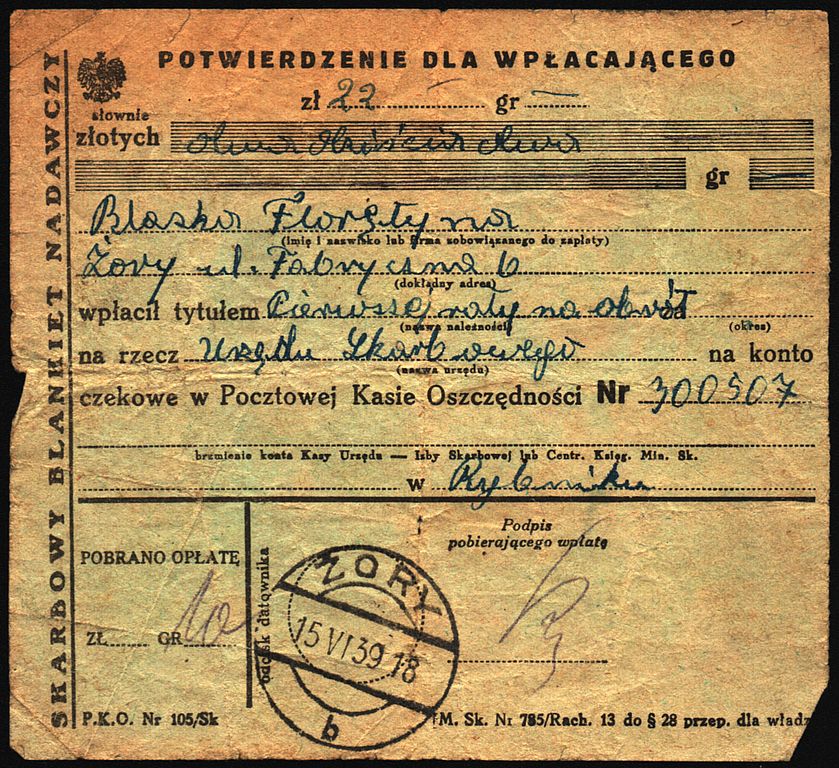 SKARBOWY BLANKIET NADAWCZY
POTWIERDZENIE DLA WPŁACAJĄCEGO
zł 22 — gr —
słownie
złotych dwadzieścia dwa
gr —
Blaska Florętyna
(imię i nazwisko lub firma zobowiązanego do zapłaty)
Żory ul. Fabryczna 6
(dokładny adres)
wpłacił tytułem Pierwszę raty na obrót za
(nazwa należności) (okres)
na rzecz Urzędu Skarbowego na konto
(nazwa urzędu)
czekowe w Pocztowej Kasie Oszczędności Nr 300507
brzmienie konta Kasy Urzędu — Izby Skarbowej lub Centr. Księg. Min. Sk.
w Rybniku
POBRANO OPŁATĘ
ZŁ GR 10
odcisk datownika
ŻORY
15 VI 39 18
b
Podpis
pobierającego wpłatę
P.K.O. Nr 105/Sk
M. Sk. Nr 785/Rach. 13 do § 28 przep. dla władz